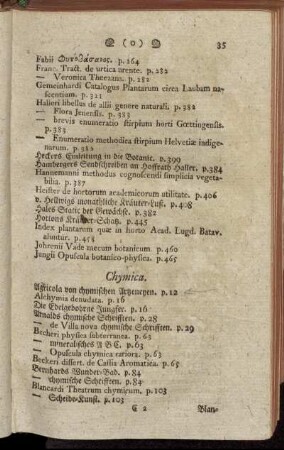 (o) 35
Fabii Φυτοβάσανος. p. 264
Franc. Tract. de urtica urente. p. 282
— Veronica Theezans. p. 282
Gemeinhardi Catalogus Plantarum circa Laubam nascentium. p. 321
Halleri libellus de allii genere naturali. p. 382
— Flora Jenensis. p. 383
— brevis enumeratio stirpium horti Gœttingensis. p. 383
— Enumeratio methodica stirpium Helvetiæ indigenarum. p. 382
Heckers Einleitung in die Botanic. p. 399
Hambergers Sendschreiben an Hoffrath Haller. p. 384
Hannemanni methodus cognoscendi simplicia vegetabilia. p. 387
Heister de hortorum academicorum utilitate. p. 406
v. Hellwigs monathliche Kräuter-Lust. p. 408
Hales Static der Gewächse. p. 382
Hottons Kräuter-Schatz. p. 445
Index plantarum quæ in horto Acad. Lugd. Batav. aluntur. p. 458
Johrenii Vade mecum botanicum. p. 460
Jungii Opuscula botanico-physica. p. 465
Chymica.
Agricola von chymischen Artzeneyen. p. 12
Alchymia denudata. p. 16
Die Edelgebohrne Jungfer. p. 16
Arnalds chymische Schrifften. p. 28
— de Villa nova chymische Schrifften. p. 29
Becheri physica subterranea. p. 63
— mineralisches A B C. p. 63
— Opuscula chymica rariora. p. 63
Beckeri differt. de Cassia Aromatica. p. 65
Bernhards Wunder-Bad. p. 84
— chymische Schrifften. p. 84
Blancardi Theatrum chymicum. p. 103
— Scheide-Kunst. p. 103
C 2 Blan-